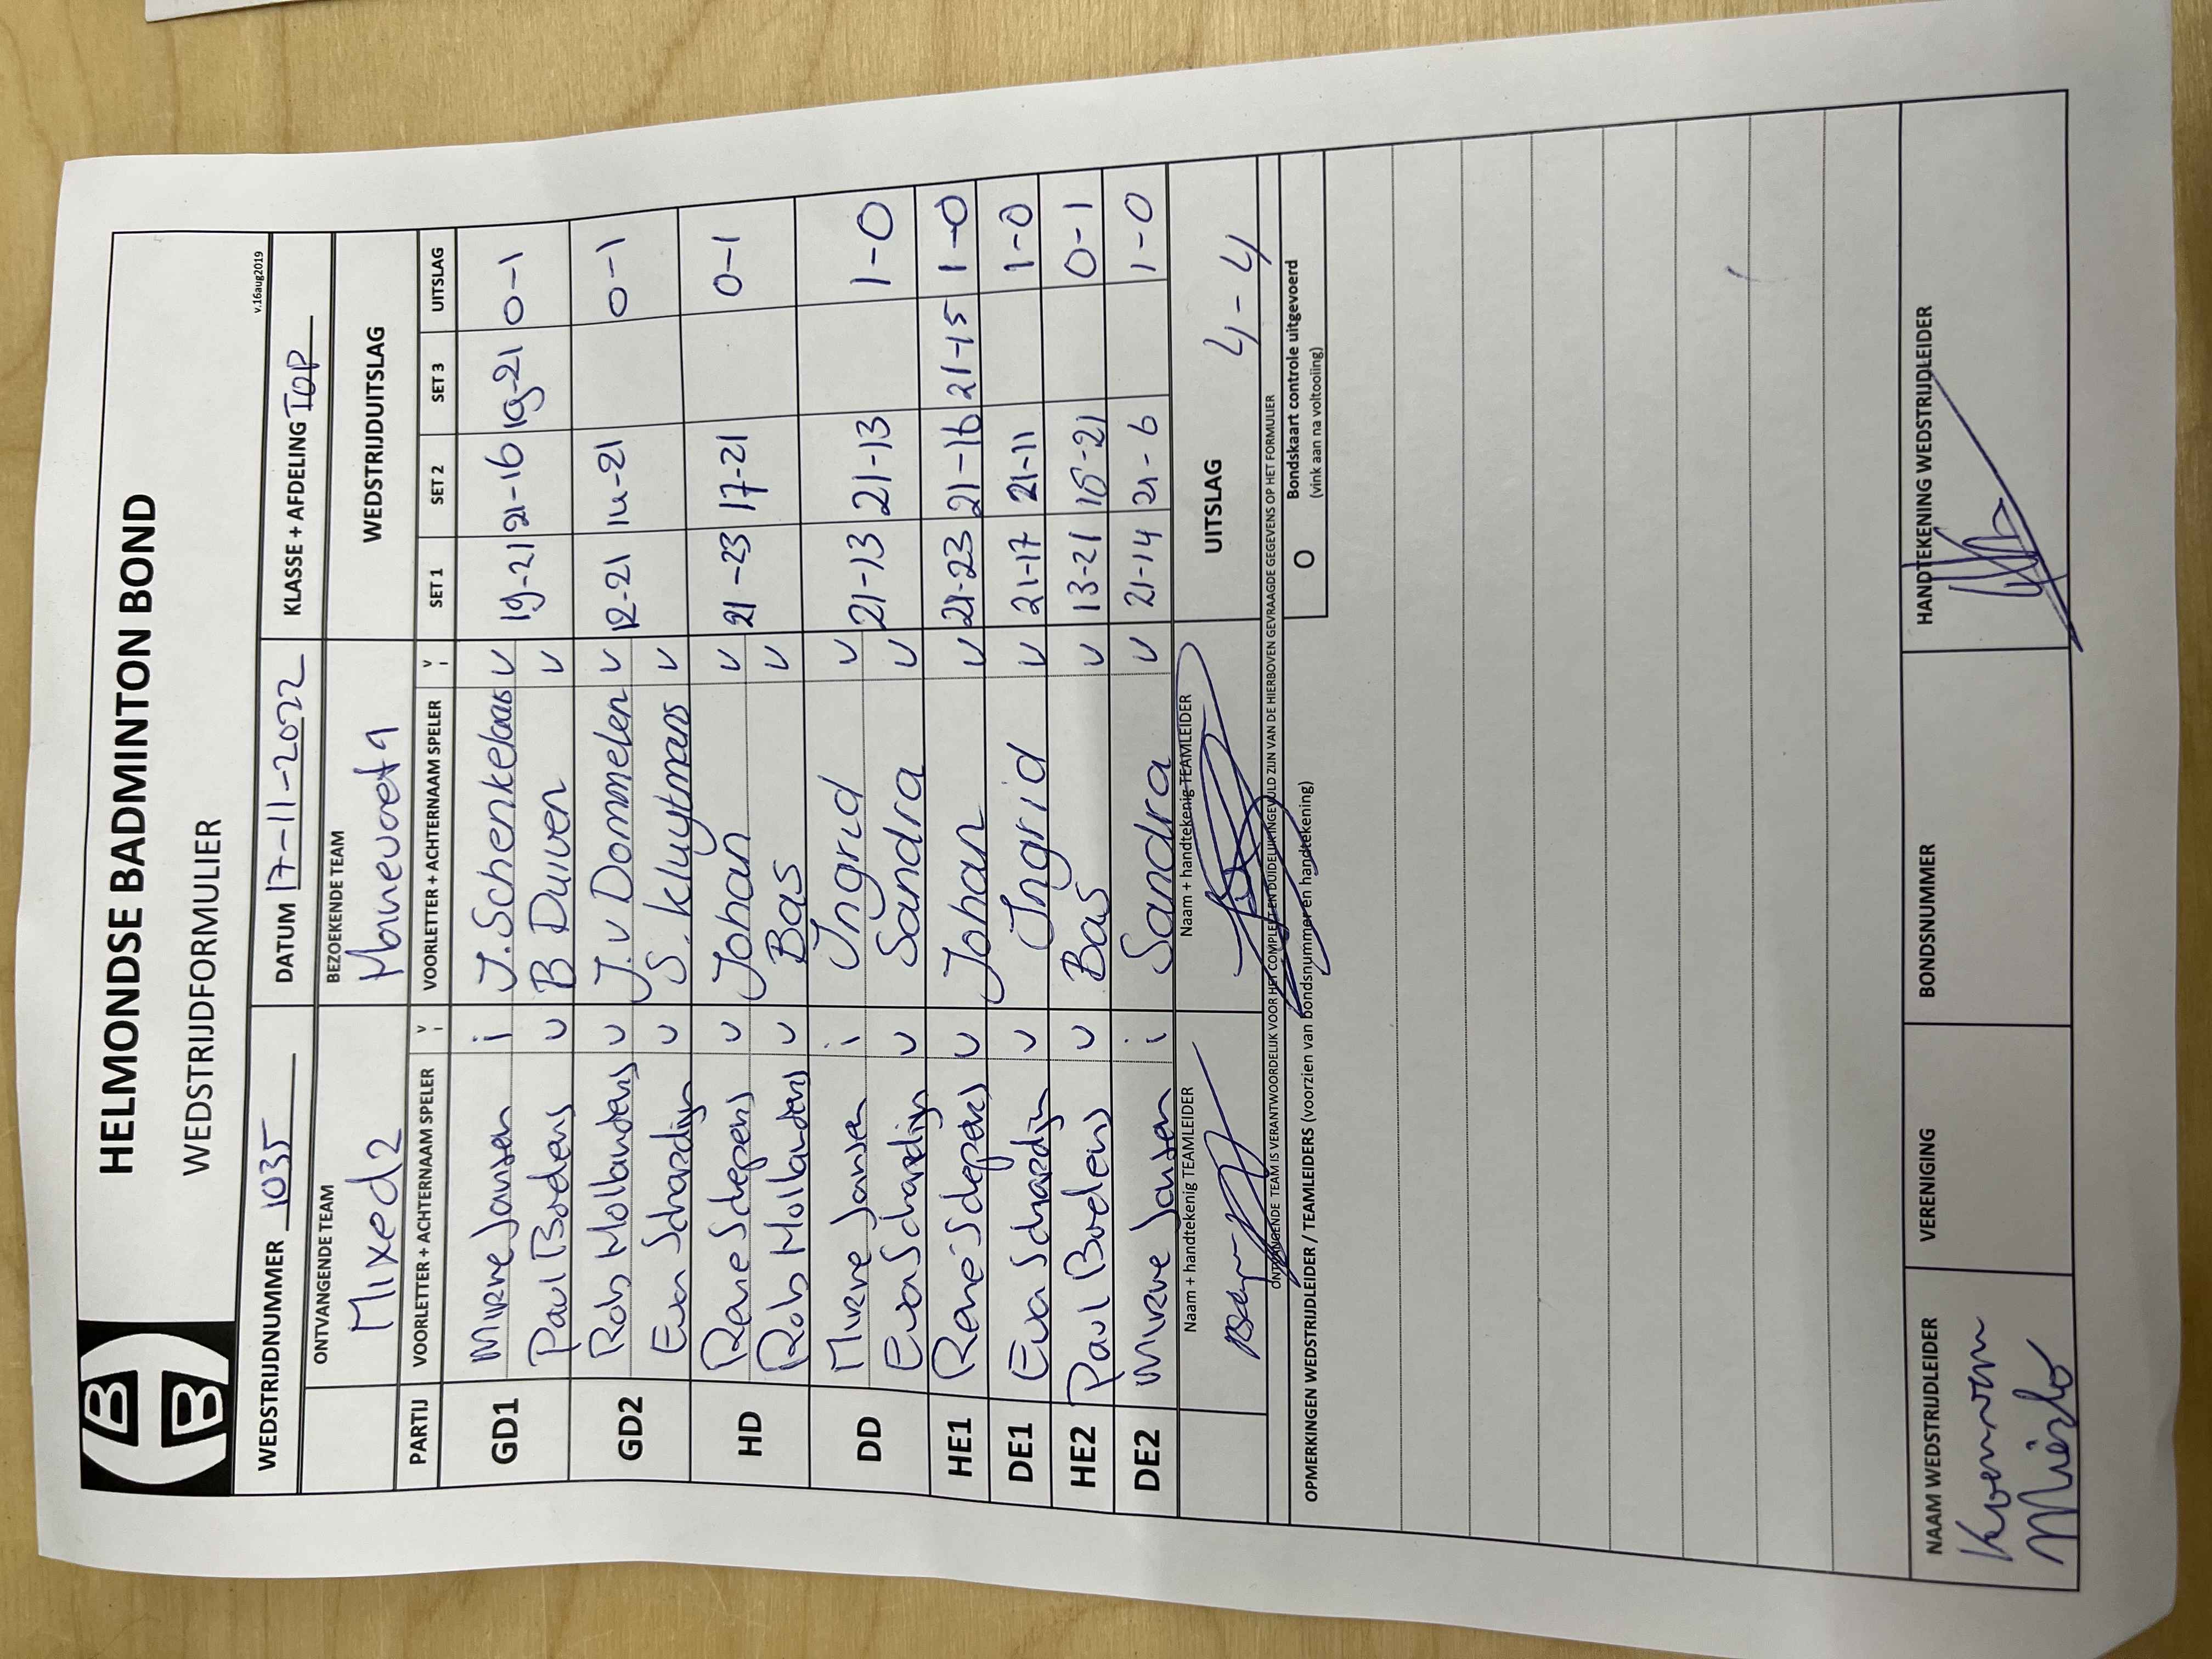 HELMONDSE BADMINTON BOND
WEDSTRIJDFORMULIER
v.16aug2019
WEDSTRIJDNUMMER 1035 DATUM 17-11-2022 KLASSE + AFDELING TOP
ONTVANGENDE TEAM BEZOEKENDE TEAM WEDSTRIJDUITSLAG
Mixed 2
PARTIJ VOORLETTER + ACHTERNAAM SPELER V i VOORLETTER + ACHTERNAAM SPELER V i SET 1 SET 2 SET 3 UITSLAG
GD1 Mirne Jansen i J. Schenkelaas v 19-21 21-16 19-21 0-1
Paul Boelens v B Duiven v
GD2 Rob Hollanders v J. v Dommelen v 12-21 14-21 0-1
Eva Schardijn v S. Kluytmans v
HD Rene Schepens v Johan v 21-23 17-21 0-1
Rob Hollanders v Bas v
DD Mirne Jansen i Ingrid v 21-13 21-13 1-0
Eva Schardijn v Sandra v
HE1 René Schepens v Johan v 21-23 21-16 21-15 1-0
DE1 Eva Schardijn v Ingrid v 21-17 21-11 1-0
HE2 Paul Boelens v Bas v 13-21 18-21 0-1
DE2 Mirne Jansen i Sandra v 21-14 21-6 1-0
Naam + handtekenig TEAMLEIDER Naam + handtekenig TEAMLEIDER UITSLAG 4-4
ONTVANGENDE TEAM IS VERANTWOORDELIJK VOOR HET COMPLEET EN DUIDELIJK INGEVULD ZIJN VAN DE HIERBOVEN GEVRAAGDE GEGEVENS OP HET FORMULIER
OPMERKINGEN WEDSTRIJDLEIDER / TEAMLEIDERS (voorzien van bondsnummer en handtekening)
O Bondskaart controle uitgevoerd
(vink aan na voltooiing)
NAAM WEDSTRIJDLEIDER VERENIGING BONDSNUMMER HANDTEKENING WEDSTRIJDLEIDER